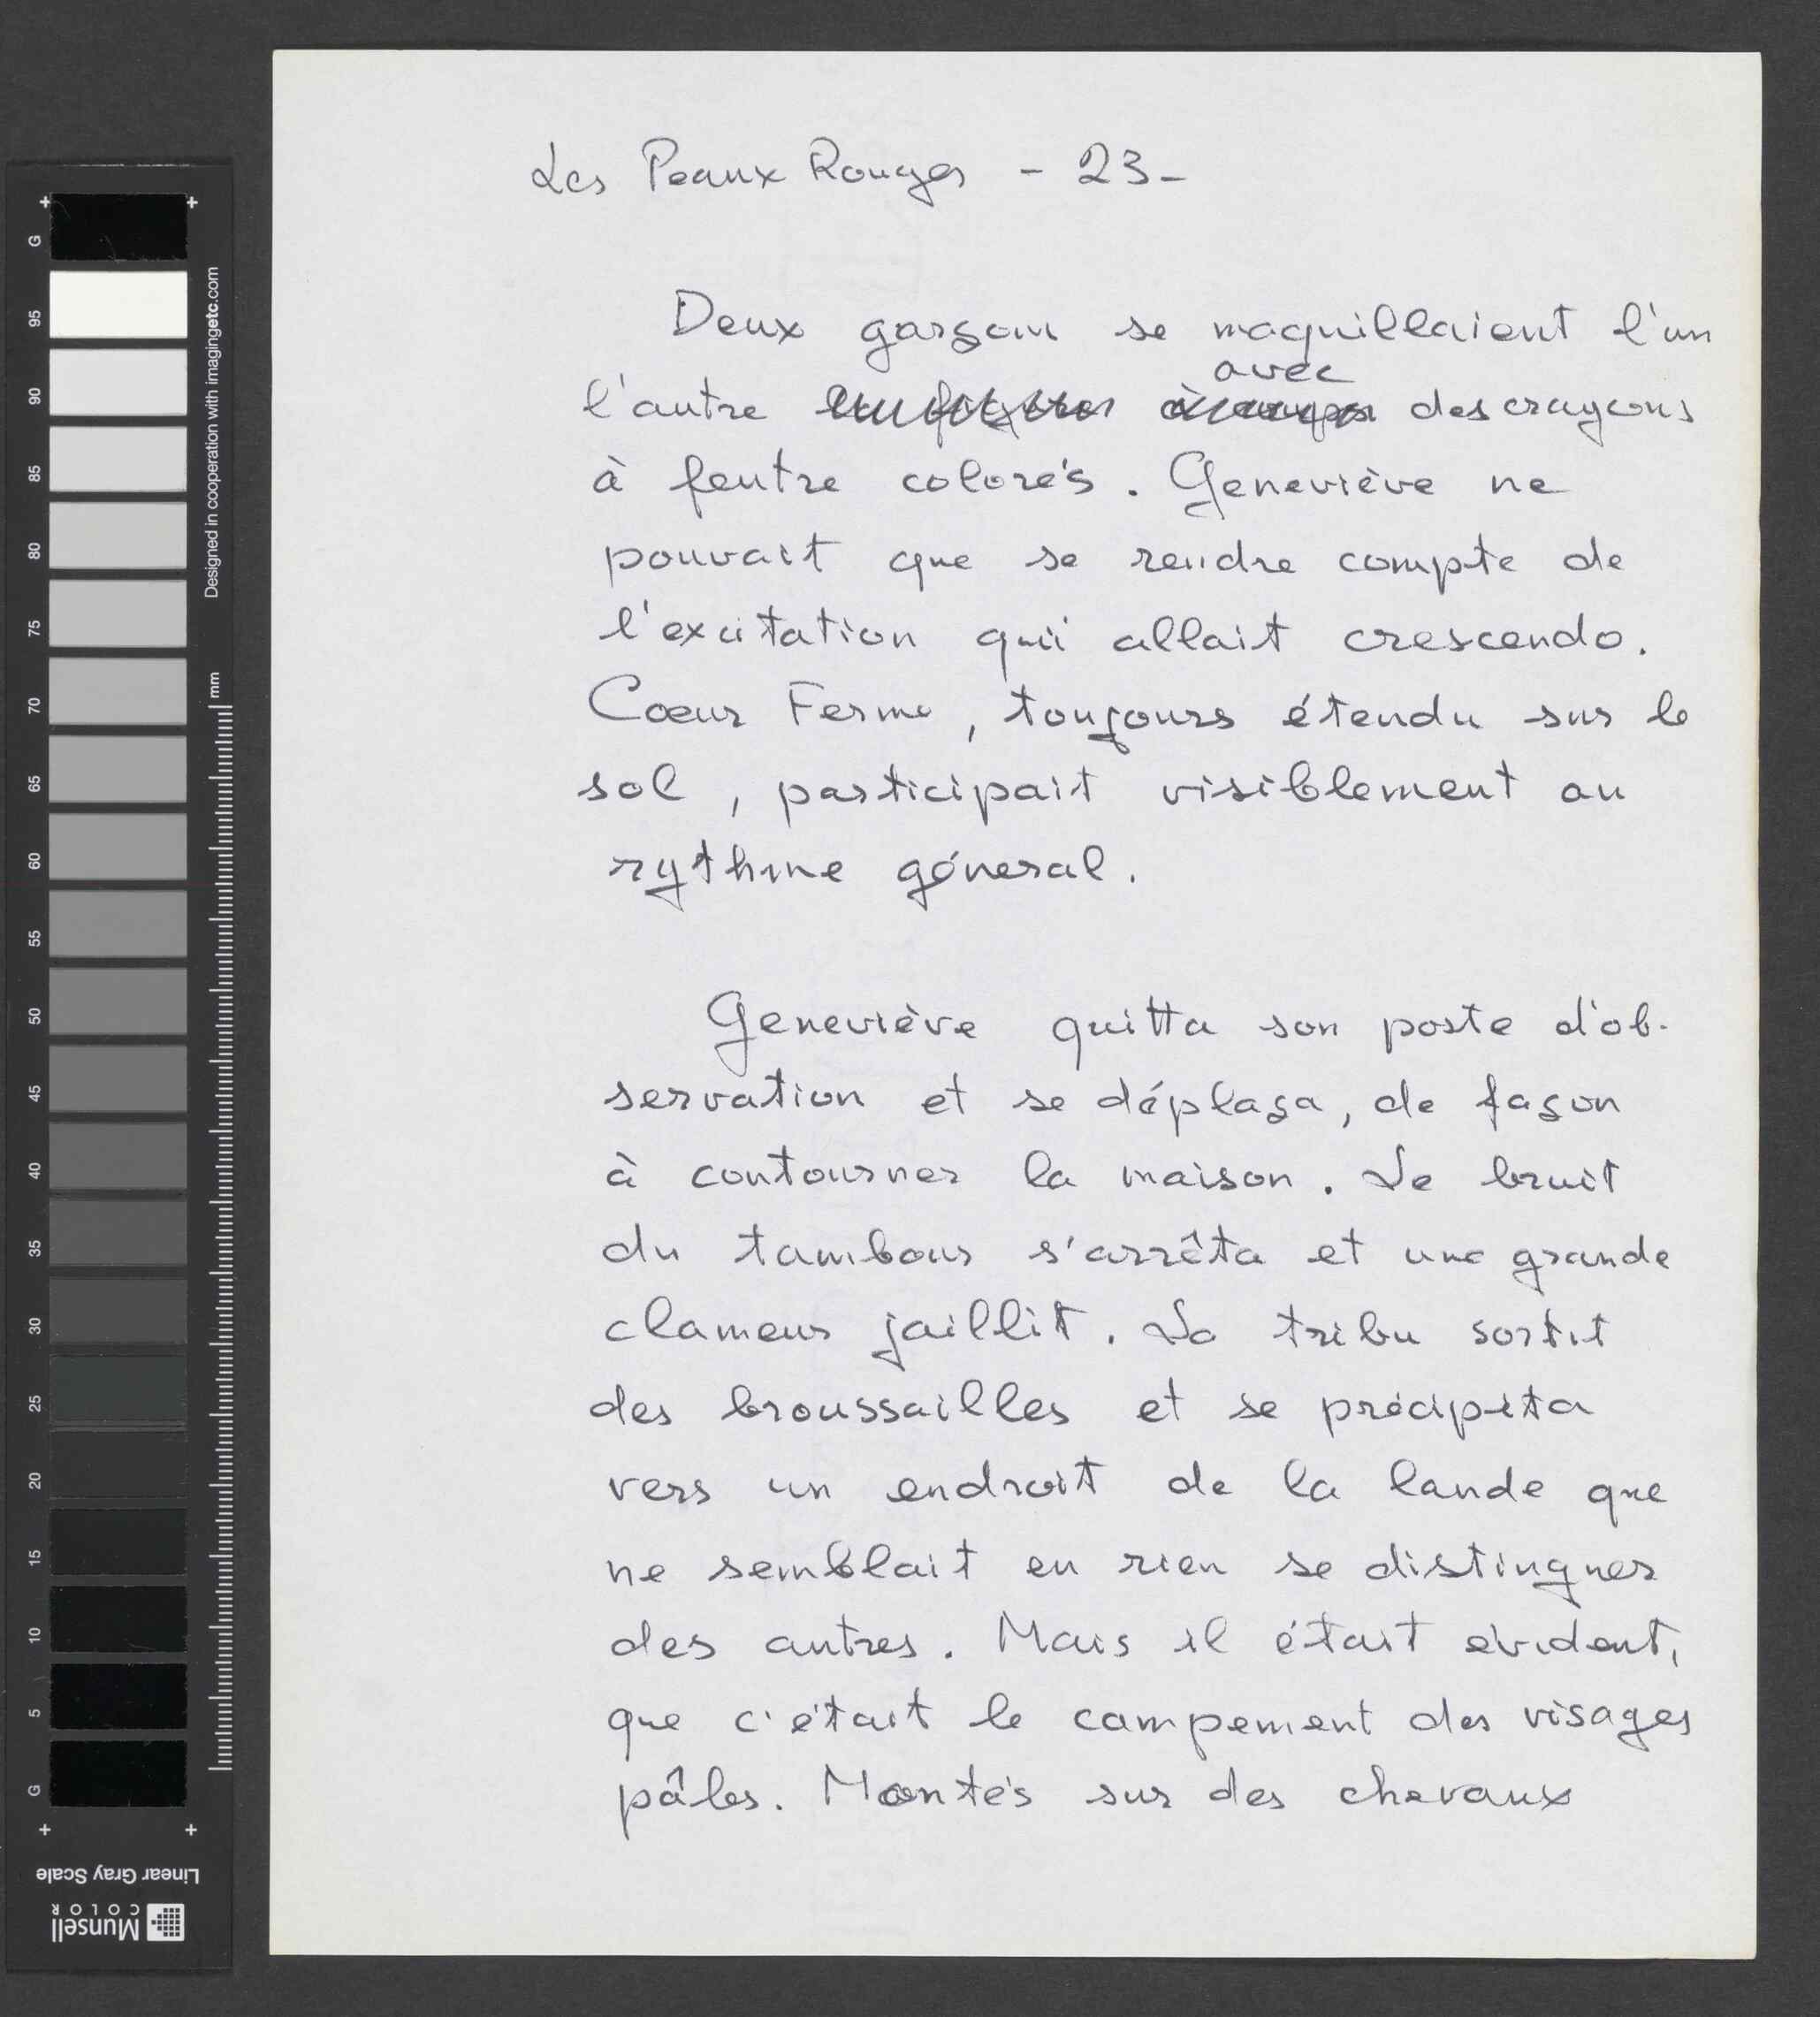 Les Peaux Rouges - 23-
Deux garçons se maquillaient l'un
avec
l'autre des crayons
à feutre colorés. Geneviève ne
pouvait que se rendre compte de
l'excitation qui allait crescendo.
Cœur Ferme, toujours étendu sur le
sol, participait visiblement au
rythme géneral.
Geneviève quitta son poste d'ob-
servation et se déplaça, de façon
à contourner la maison. Le bruit
du tambour s'arrêta et une grande
clameur jaillit. La tribu sortit
des broussailles et se précipita
vers un endroit de la lande que
ne semblait en rien se distinguer
des autres. Mais il était évident,
que c'était le campement des visages
pâles. Montés sur des chevaux
G
95
90
85
80
75
70
65
60
55
50
45
40
35
30
25
20
15
10
5
G
Designed in cooperation with imagingetc.com
mm
Linear Gray Scale
Munsell
COLOR